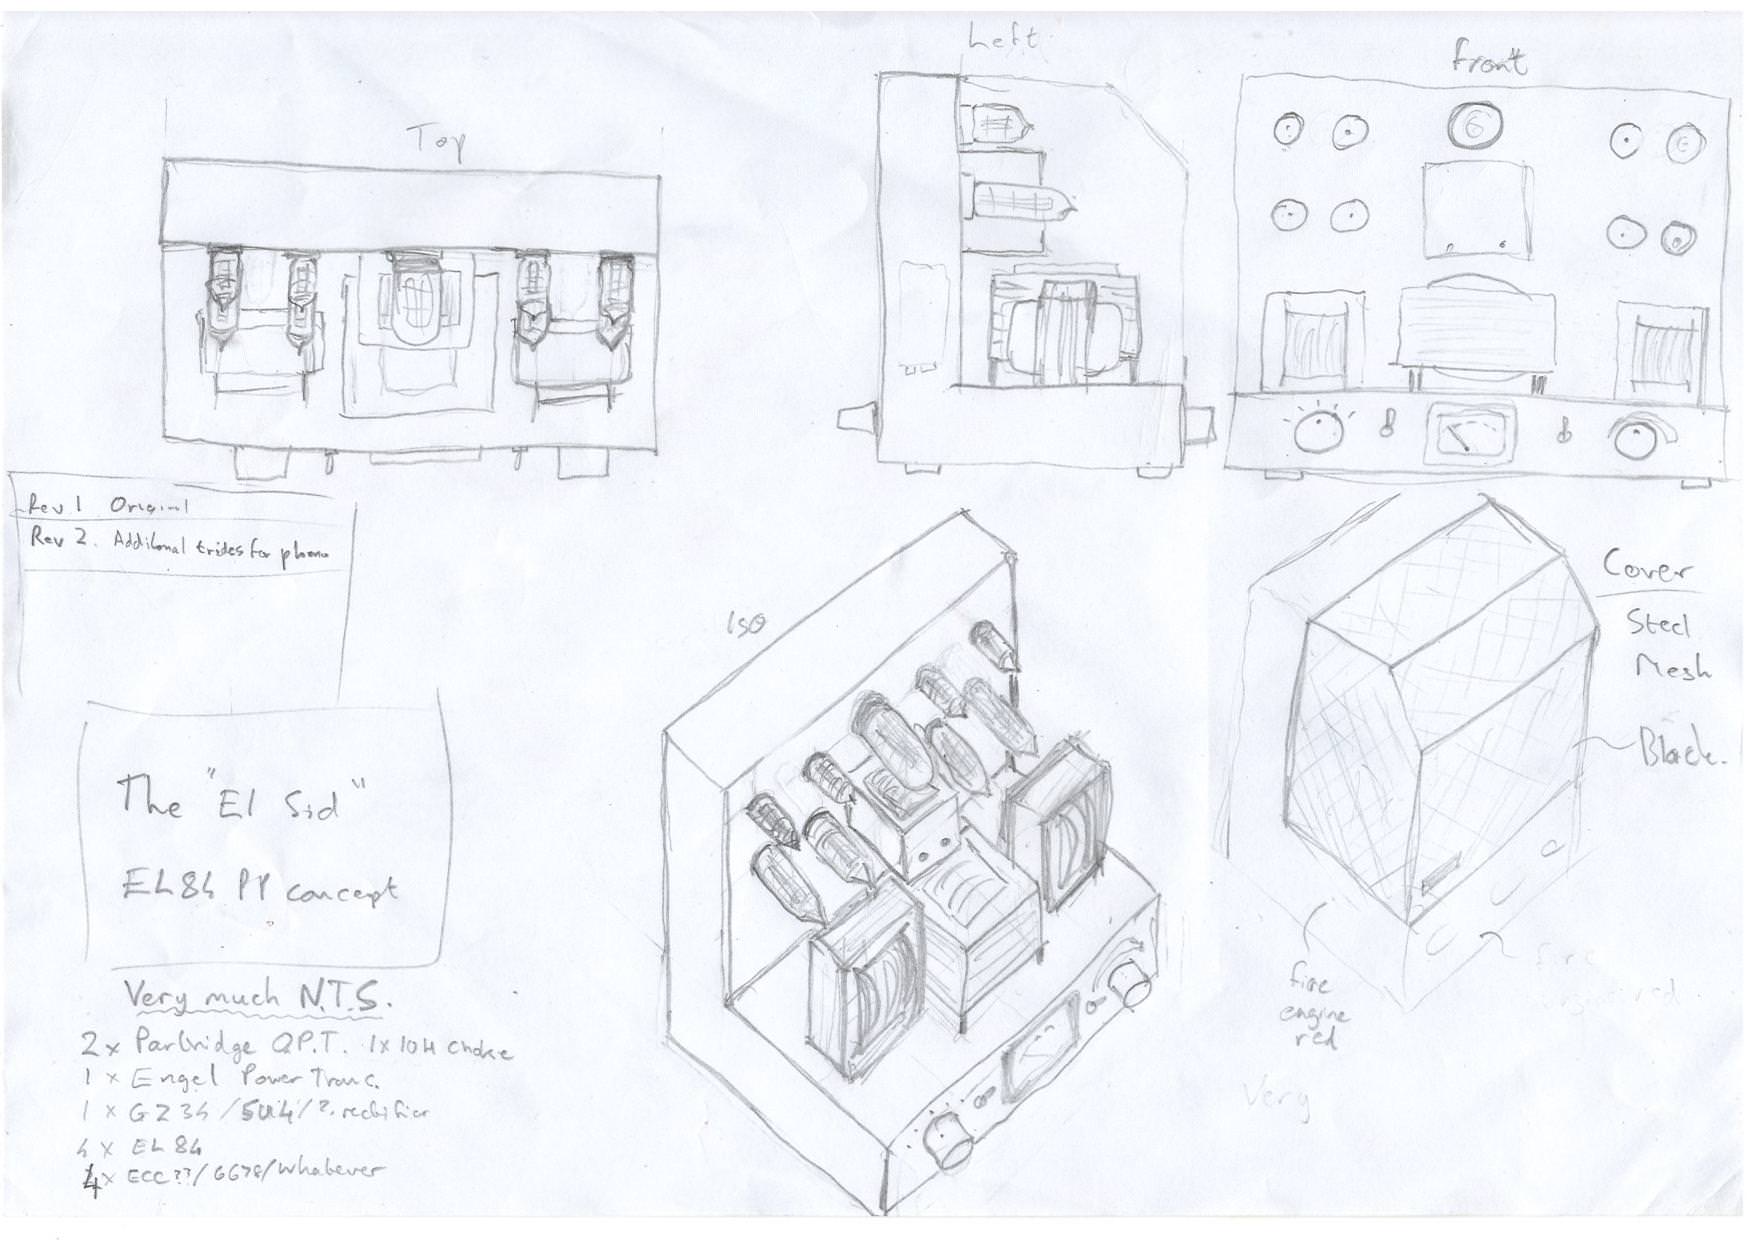 Top
Left
Front
Rev 1 Original
Rev 2. Additional triodes for phono
The "El Sid"
EL84 PP concept
Very much N.T.S.
2 x Partridge O.P.T. 1 x 10H choke
1 x Engel Power Trans.
1 x GZ34 / 5U4 / ?. rectifier
4 x EL84
4 x ECC?? / / Whatever
ISO
Cover
Steel
Mesh
Black.
fire
engine
red
fire
red
Very